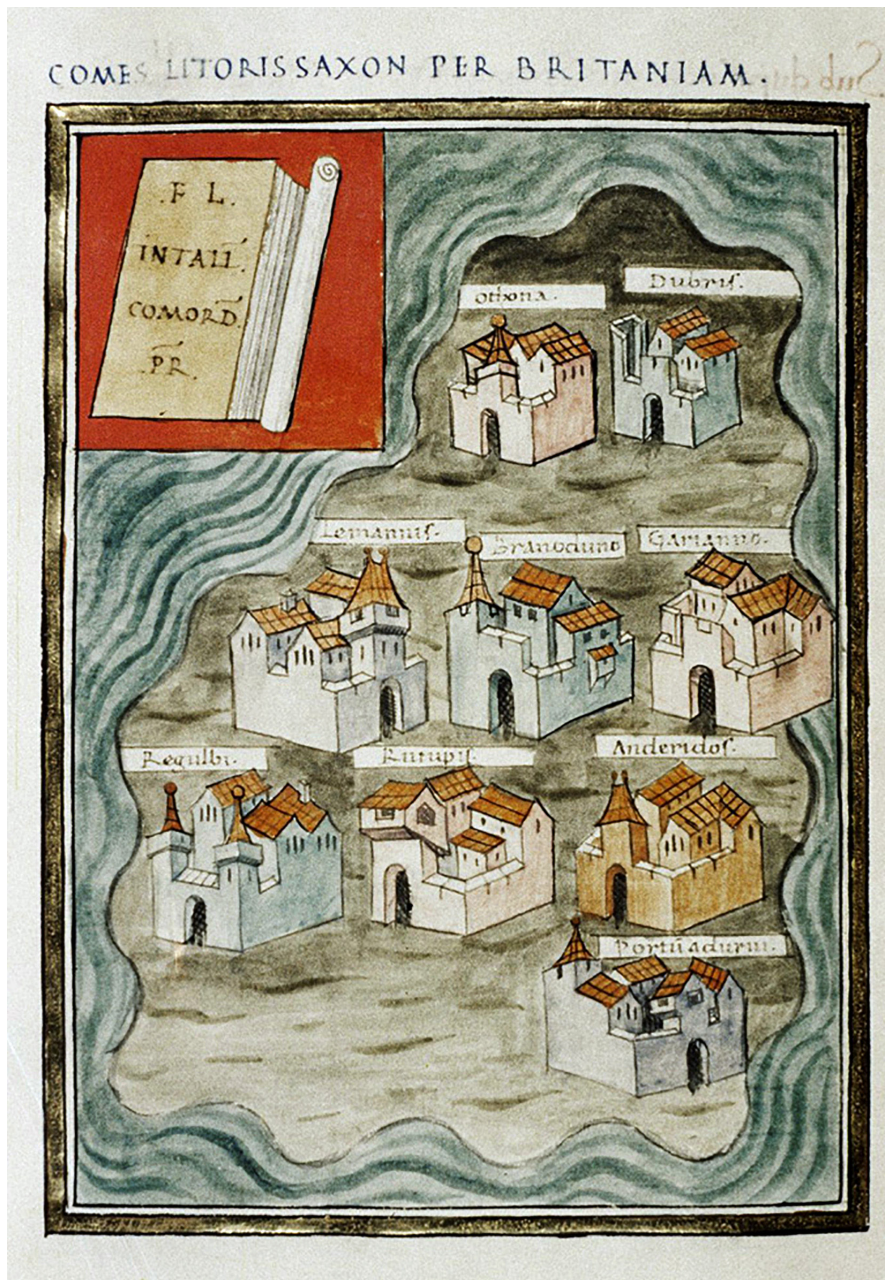 COMES LITORIS SAXON PER BRITANIAM.
.F L.
INTALL.
COMORD.
.PR.
Othona.
Dubris.
Lemannis.
Branoduno
Garianno.
Regulbi.
Rutupis.
Anderidos.
Portū adurni.